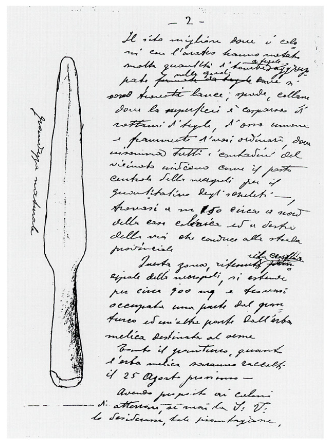 - 2 -
Il sito migliore dove i coloni con l'aratro hanno notato
molta quantità di
pato
sono trovate lance, spade, collane
dove la superficie è cosparsa di
rottami d'tegole, d'ossa umane
e frammenti d'vasi ordinari, dove
nessuno tutti i contadini del
vicinato indicano come il posto
centrale della necropoli per il
quantitativo degli scheletri -,
trovasi a m 150 circa a nord
della casa colonica ed a destra
della via che conduce alla strada
provinciale
Questa zona, ritenuta
cipale della necropoli, si estende
per circa 900 mq e trovasi
occupata una parte dal gran
turco ed un'altra parte dall'erba
medica destinata al seme
Tanto il granturco, quanto
l'erba medica saranno raccolti
il 25 Agosto prossimo -
Avendo proposto ai coloni
di atterrare, se mai la S. V.
lo desiderava, tale piantagione,
grandezza naturale